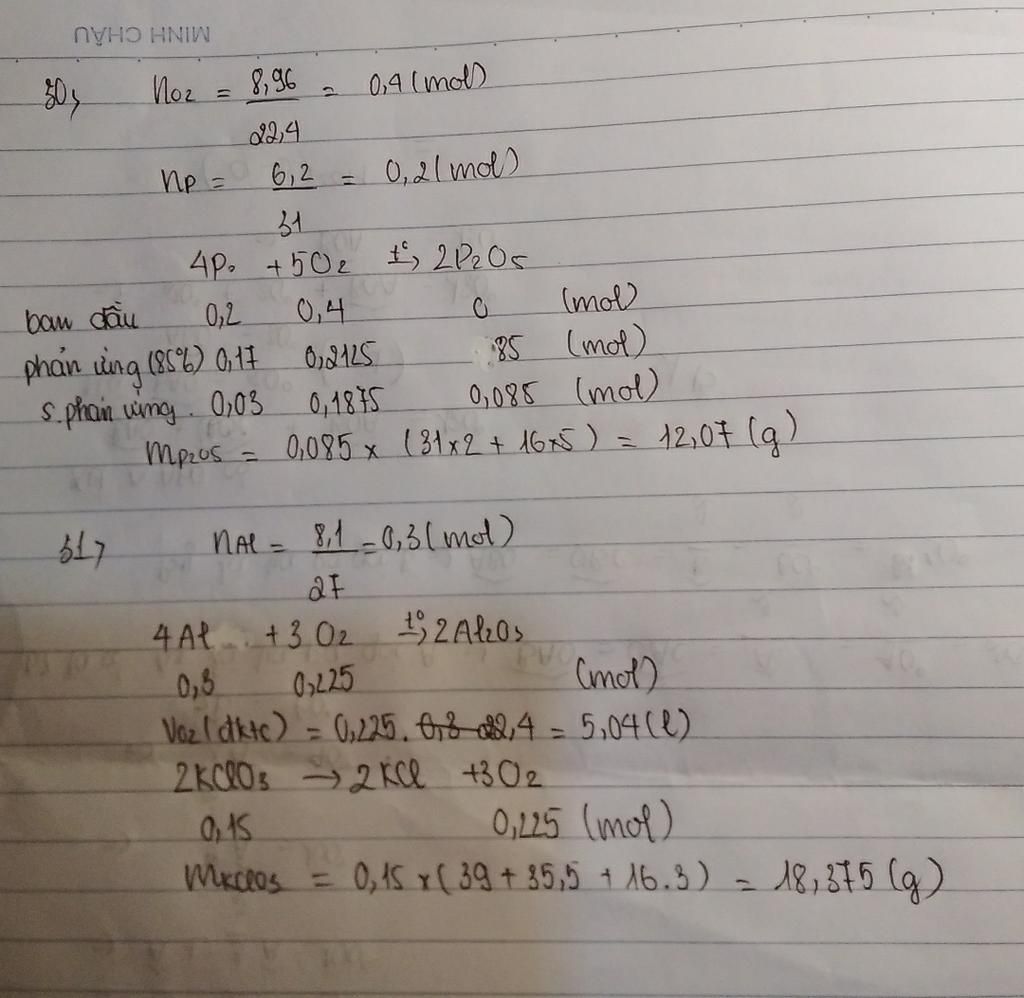 MINH CHÂU
30, nO2 = 8,96 / 22,4 = 0,4 (mol)
nP = 6,2 / 31 = 0,2 (mol)
4P. + 5O2 t°→ 2P2O5
ban đầu 0,2 0,4 0 (mol)
phản ứng (85%) 0,17 0,2125 85 (mol)
s. phản ứng. 0,03 0,1875 0,085 (mol)
mP2O5 = 0,085 x (31x2 + 16x5) = 12,07 (g)
31, nAl = 8,1 / 27 = 0,3 (mol)
4Al + 3O2 t°→ 2Al2O3
0,3 0,225 (mol)
VO2 (đktc) = 0,225. 22,4 = 5,04 (l)
2KClO3 → 2KCl + 3O2
0,15 0,225 (mol)
mKClO3 = 0,15 x (39 + 35,5 + 16.3) = 18,375 (g)